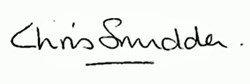 Chris Smudder.